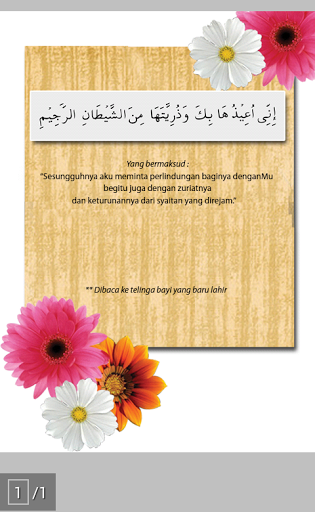 إِنِّى اُعِيْذُهَا بِكَ وَذُرِّيَّتَهَا مِنَ الشَّيْطَانِ الرَّجِيْمِ
Yang bermaksud :
"Sesungguhnya aku meminta perlindungan baginya denganMu
begitu juga dengan zuriatnya
dan keturunannya dari syaitan yang direjam."
** Dibaca ke telinga bayi yang baru lahir
1 /1